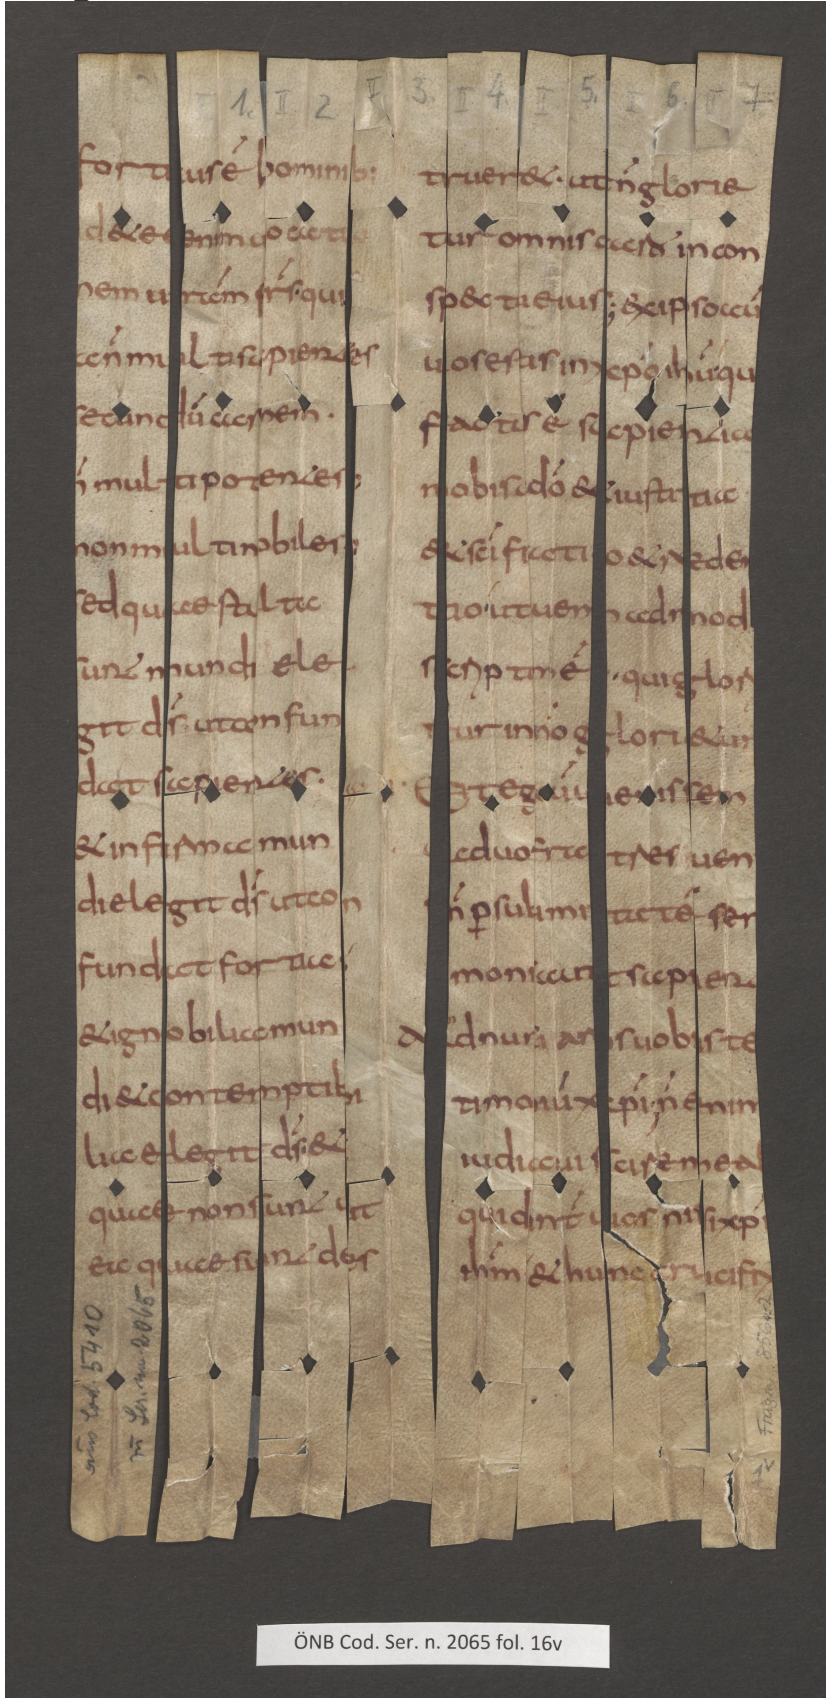 fortius ē hominib;
d& e enim uocatio
nem urām frs. qui
n̄ multi sapientes
secundū carnem.
n̄ multi potentes;
non multi nobiles;
sed quae stulta
sunt mundi ele
git ds. ut confun
dat sapientes.
& infirma mun
di elegit ds ut con
fundat fortia;
& ignobilia mun
di & contemptibi
lia elegit ds; &
quae non sunt ut
ea quae sunt des
truer&. ut n̄ glorie
tur omnis caro in con
spectu eius; ex ipso aū
uos estis in xpo ihu. qui
factus ē sapientia
nobis a do & iustitia
& scificatio & redem
tio. ut quem ad mod
scriptum ē. qui glor
tur in dno glori&ur
Et ego cū uenissem
ad uos fratres uen
n̄ p sublimitatē ser
monis aut sapien
adnuntians uobis tes
timoniū xpi; n̄ enim
iudicaui scire me al
quid int uos nisi xpi
ihm & hunc crucifix
1. II 2 II 3. II 4. II 5. II 6. II 7
Cod. 5410
Ser. n. 2065
Fragm.
ÖNB Cod. Ser. n. 2065 fol. 16v